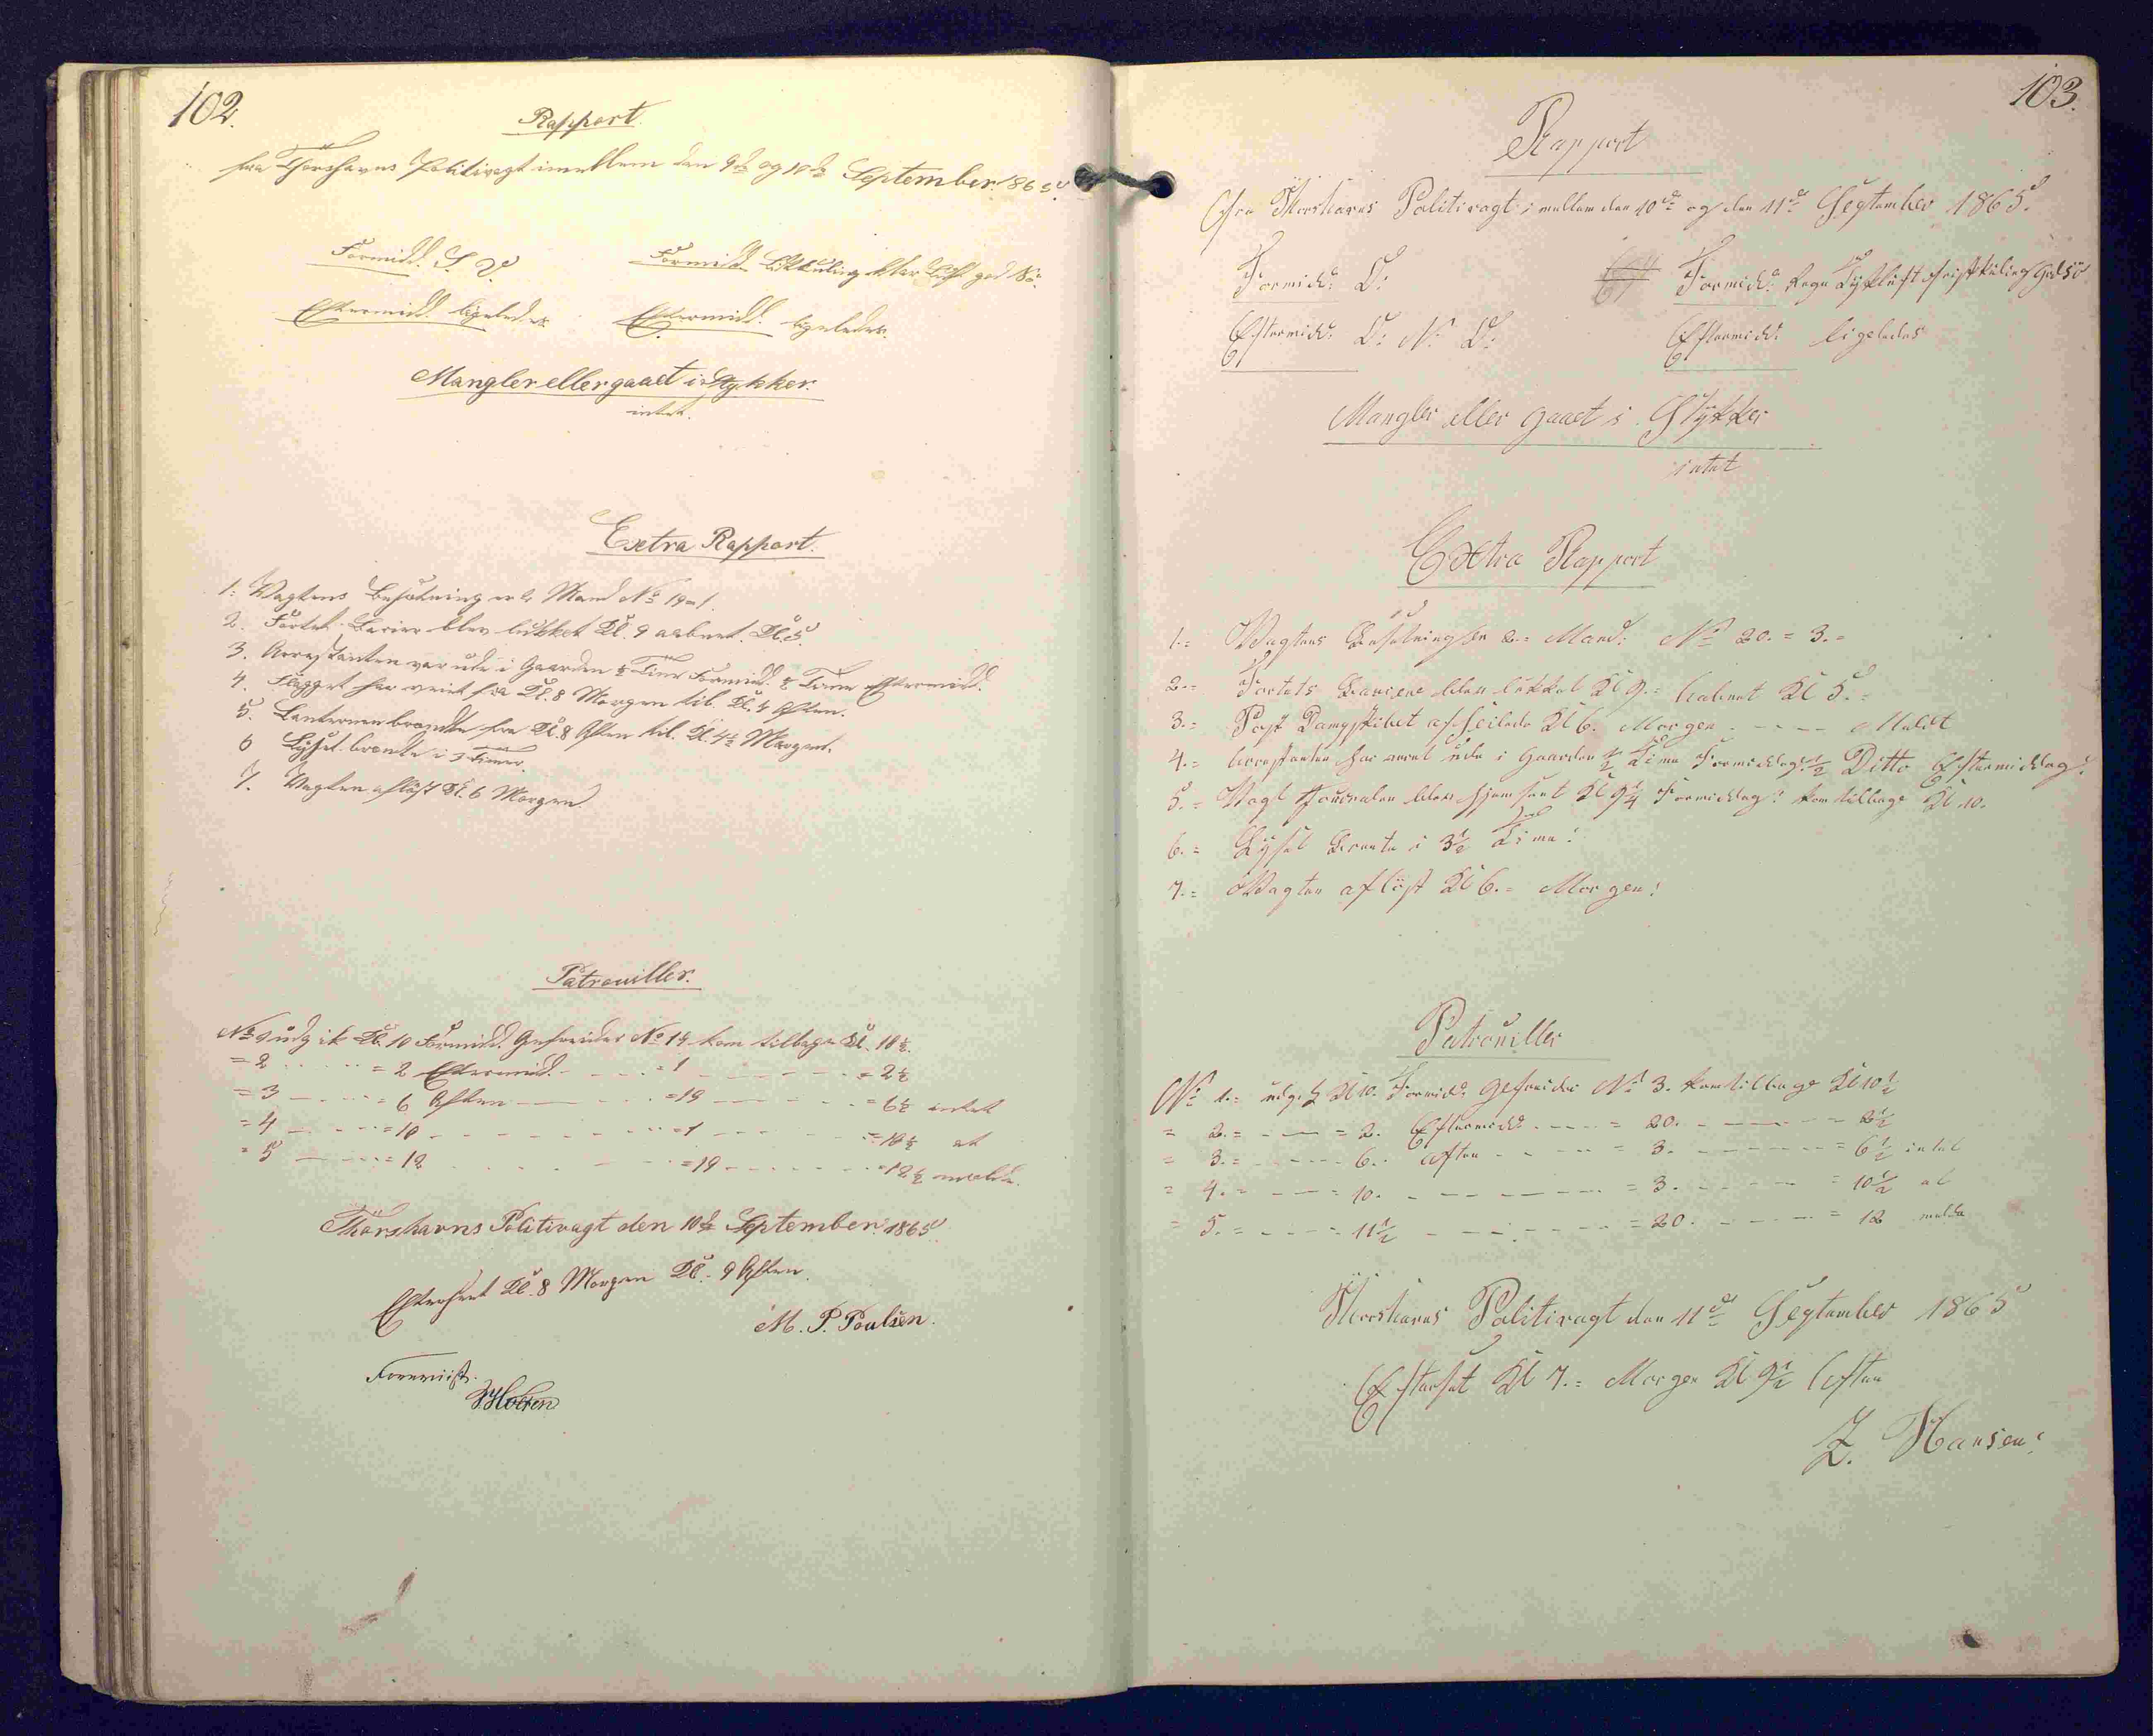 102.
Rapport.
fra Thorshavns Politivagt imellem den 9de og 10de September 1865.
Formidd. S. V. Formidd. Lidt kuling klar Luft god Sö.
Eftermidd. ligeledes Eftermidd. ligeledes.
Mangler eller gaaet i Stykker.
intet.
Extra Rapport.
1. Vagtens Besætning er 2 Mand No 19 = 1.
2. Fortets Barier blev lukket Kl. 9 aabnet Kl. 5
3. Arrestanten var ude i Gaarden ½ Time Formidd. ½ Time Eftermidd.
4. Flagget har veiet fra Kl. 8 Morgen til Kl. 4 Aften.
5. Lanternen brændte fra Kl. 8 Aften til Kl. 4½ Morgen.
6 Lyset brændte i 3 Timer.
7. Vagten aflöst Kl. 6 Morgen
Patrouiller.
No 1 udgik Kl. 10 Formidd. Gefreider No 19 kom tilbage Kl. 10½.
= 2 = 2 Eftermidd. = 1 = 2½
= 3 = 6 Aften = 19 = 6½ intet
= 4 = 10 = 1 = 10½ at
= 5 = 12 = 19 = 12½ melde.
Thorshavns Politivagt den 10de September 1865
Efterseet Kl. 8 Morgen Kl. 9 Aften.
M. P. Poulsen.
Foreviist.
HHolten
103.
Rapport
Fra Thorshavns Politivagt imellem den 10de og den 11te September 1865.
Formidd: O: Formidd: Regn Tyk luft frisk kuling God Sö
Eftermidd: O: N: O: Eftermidd: ligeledes
Mangler eller gaaet i Stykker
intet
Extra Rapport
1.= Vagtens Besætning er 2.= Mand: No 20. = 3.=
2.= Fortets Bariere blev lukket Kl 9.= aabnet Kl 5.=
3.= Post Dampskibet afseilede Kl 6. Morgen
4.= Arrestanten har været ude i Gaarden ½ Time Formiddag: ½ Ditto Eftermiddag:
5.= Vagt Journalen blev hjemsent Kl 9¼ Formiddag: kom tilbage Kl 10.
6.= Lyset Brente i 3½ Time:
7.= Vagten aflöst Kl 6.= Morgen:
Patrouiller
No 1.= udgik Kl 10. Formidd: Gefreider No 3. kom tilbage Kl 10½
= 2.= = 2. Eftermidd: = 20. = 2½
= 3.= 6. Aften = 3. = 6½ intet
= 4.= = 10. = 3. = 10½ at
= 5.= = 11½ = 20. = 12 melde
Thorshavns Politivagt den 11te September 1865
Efterset Kl 7.= Morgen Kl 9½ Aften
Z. Hansen: